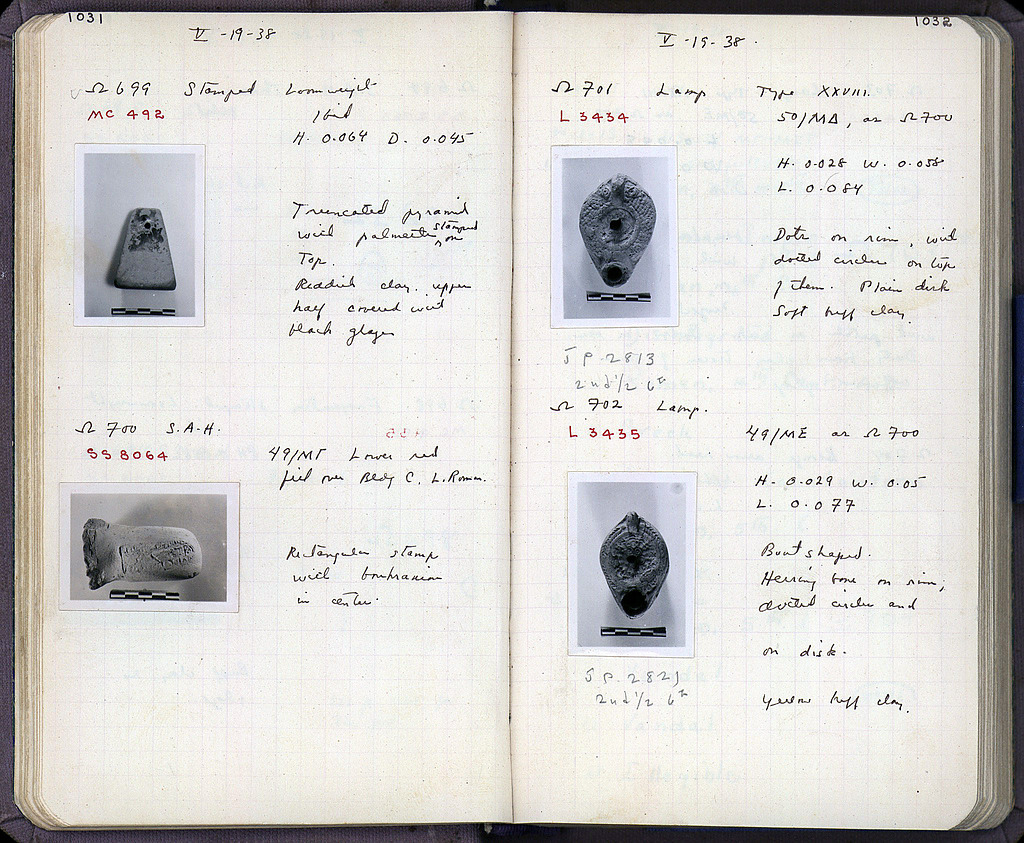 1031
V -19-38
Ω 699 Stamped Loomweight
MC 492
Ibid
H. 0.064 D. 0.045
Truncated pyramid
with palmette stamped on
Top.
Reddish clay. upper
half covered with
black glaze
Ω 700 S.A.H.
SS 8064
49/ΜΓ Lower red
fill over Bldg C. L. Roman.
Rectangular stamp
with boukranion
in center.
1032
V -19-38.
Ω 701 Lamp Type XXVIII.
L 3434
50/ΜΔ, as Ω 700
H. 0.028 W. 0.058
L. 0.084
Dots on rim, with
dotted circles on top
of them. Plain disk
Soft buff clay.
J P. 2813
2nd 1/2 6th
Ω 702 Lamp.
L 3435
49/ΜΕ as Ω 700
H. 0.029 W. 0.05
L. 0.077
Boat shaped.
Herring bone on rim;
dotted circles and
on disk.
J P. 2821
2nd 1/2 6th
Yellow buff clay.